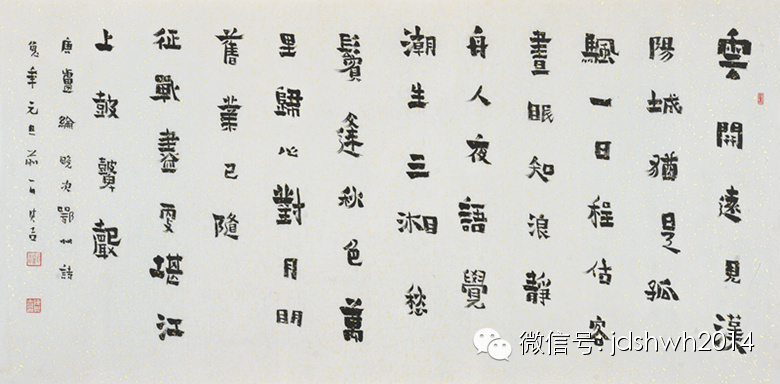 雲開遠見漢
陽城猶是孤
颿一日程估客
晝眠知浪靜
舟人夜語覺
潮生三湘愁
鬢逢秋色萬
里歸心對月明
舊業已隨
征戰盡更堪江
上鼓鼙聲
唐盧綸晚次鄂州詩
兔年元旦
微信号: jdshwh2014